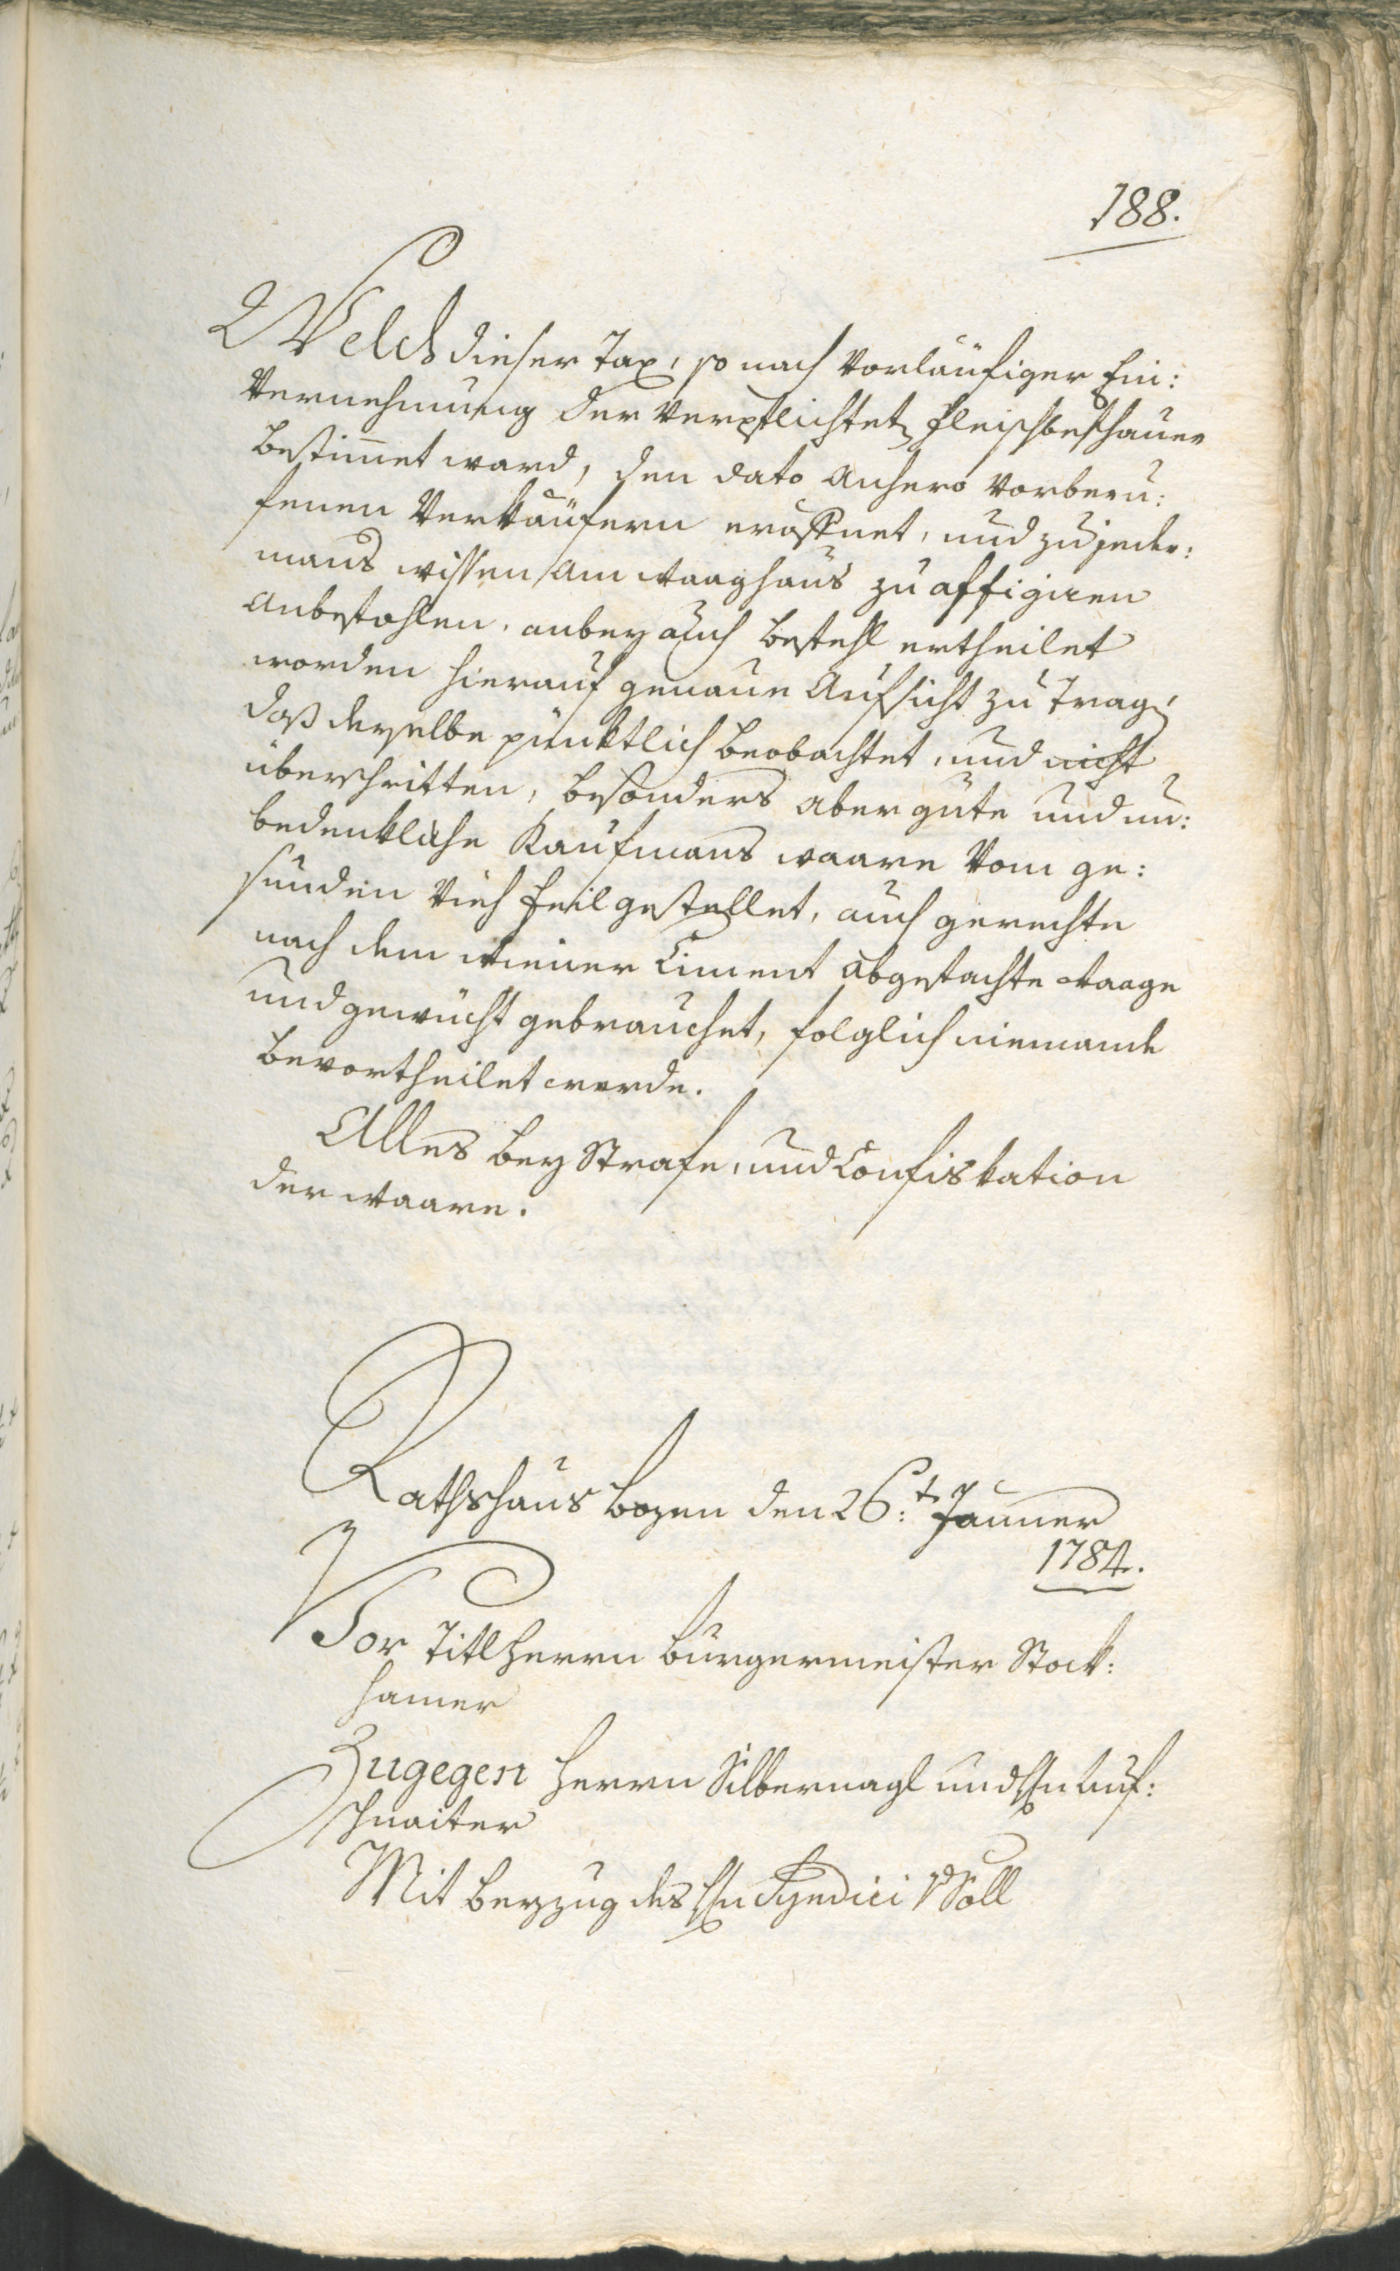 188.
Welch dieser Tax, so nach vorläufiger Ein:
vernehmung der verpflichteten Fleischbeschauer
bestimmet ward, den dato anhero vorberu:
fenen Verkäufern eröffnet, und zu jeder:
mans wissen am Waaghaus zu affigiren
anbefohlen, anbey auch befehl ertheilet
worden hierauf genaue Aufsicht zu tragen,
daß derselbe pünktlich beobachtet, und nicht
überschritten, besonders aber gute und un:
bedenkliche Kaufmans waare vom ge:
sunden Vieh feilgestellet, auch gerechte
nach dem Wiener Ciment abgefachte Waage
und gewicht gebrauchet, folglich niemande
bevortheilet werde.
Alles bey Strafe, und Confiskation
der Waare.
Rathshaus bozen den 26:t Jänner
1784.
Vor Titl herrn burgermeister Stock:
hamer
Zugegen herrn Silbernagl und Hrn Auf:
schnaiter
Mit beyzug des Hrn Syndici v Söll